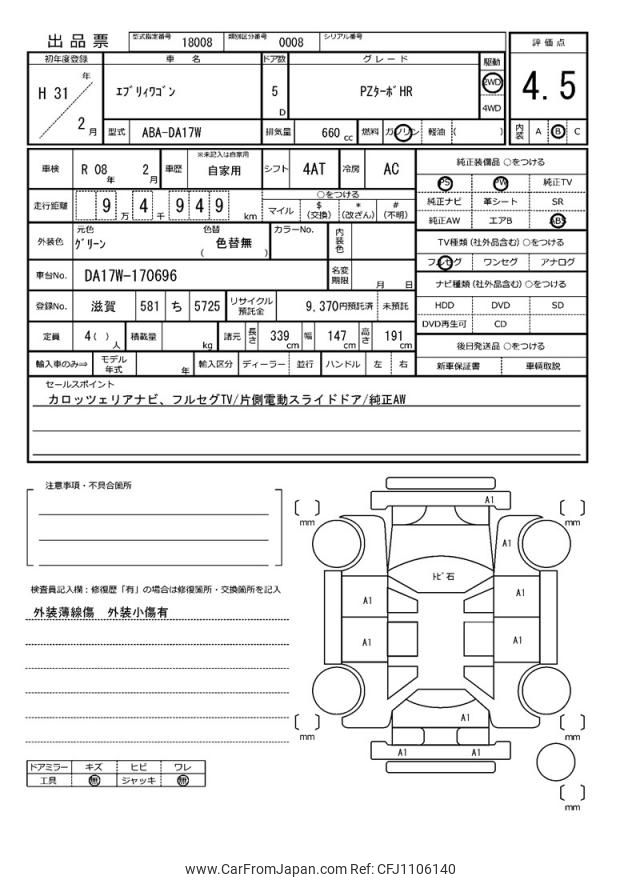 出品票 型式指定番号 18008 類別区分番号 0008 シリアル番号
初年度登録 車名 ドア数 グレード 駆動 評価点
H 31 年 2 月 ｴﾌﾞﾘｨﾜｺﾞﾝ 5 D PZﾀｰﾎﾞHR 2WD 4WD 4.5
型式 ABA-DA17W 排気量 660 cc 燃料 ガソリン 軽油 ( ) 内装 A B C
車検 R 08 年 2 月 車歴 ※未記入は自家用 自家用 シフト 4AT 冷房 AC
走行距離 9 万 4 千 9 4 9 km ○をつける
マイル $ (交換) * (改ざん) # (不明)
外装色 元色 ｸﾞﾘｰﾝ 色替 色替無 ( ) カラーNo. 内装色
車台No. DA17W-170696 名変期限 月 日
登録No. 滋賀 581 ち 5725 リサイクル預託金 9,370円預託済 未預託
定員 4 ( ) 人 積載量 kg 諸元 長さ 339 cm 幅 147 cm 高さ 191 cm
輸入車のみ⇒ モデル年式 年 輸入区分 ディーラー 並行 ハンドル 左 右
純正装備品 ○をつける
PS PW 純正TV
純正ナビ 革シート SR
純正AW エアB ABS
TV種類 (社外品含む) ○をつける
フルセグ ワンセグ アナログ
ナビ種類 (社外品含む) ○をつける
HDD DVD SD
DVD再生可 CD
後日発送品 ○をつける
新車保証書 車輌取説
セールスポイント
カロッツェリアナビ、フルセグTV/片側電動スライドドア/純正AW
注意事項・不具合箇所
検査員記入欄：修復歴「有」の場合は修復箇所・交換箇所を記入
外装薄線傷 外装小傷有
ドアミラー キズ ヒビ ワレ
工具 無 ジャッキ 無
A1
mm mm
A1
ﾄﾋﾞ石
A1 A1
A1 A1
A1
mm mm
A1 A1
mm
www.CarFromJapan.com Ref: CFJ1106140